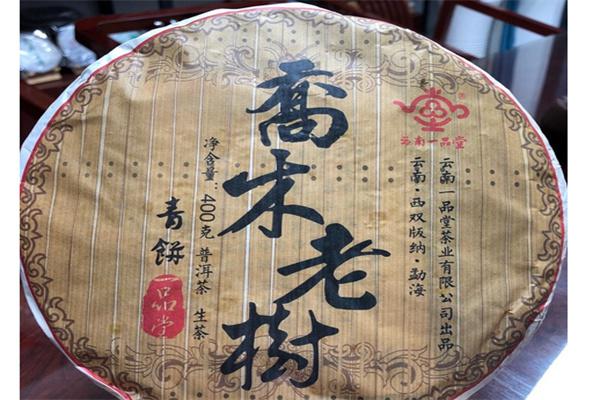 喬木老樹
云南一品堂
云南一品堂茶业有限公司出品
云南·西双版纳·勐海
净含量：400克 普洱茶 生茶
青餅
一品堂